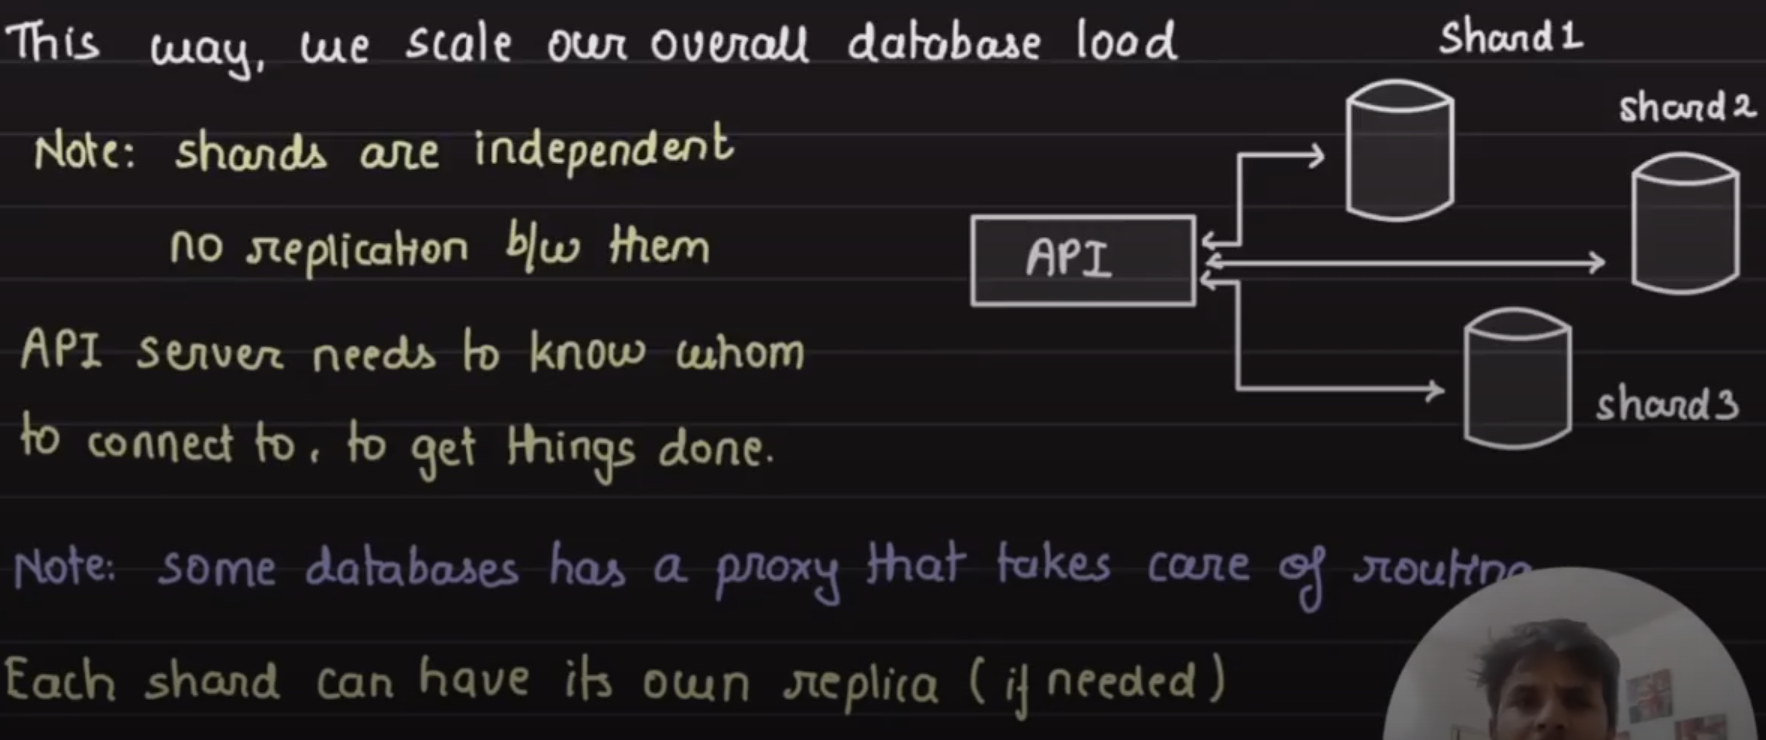 This way, we scale our overall database load
Note: shards are independent
no replication b/w them
API server needs to know whom
to connect to, to get things done.
Note: some databases has a proxy that takes care of routing
Each shard can have its own replica (if needed)
Shard 1
shard 2
API
shard 3